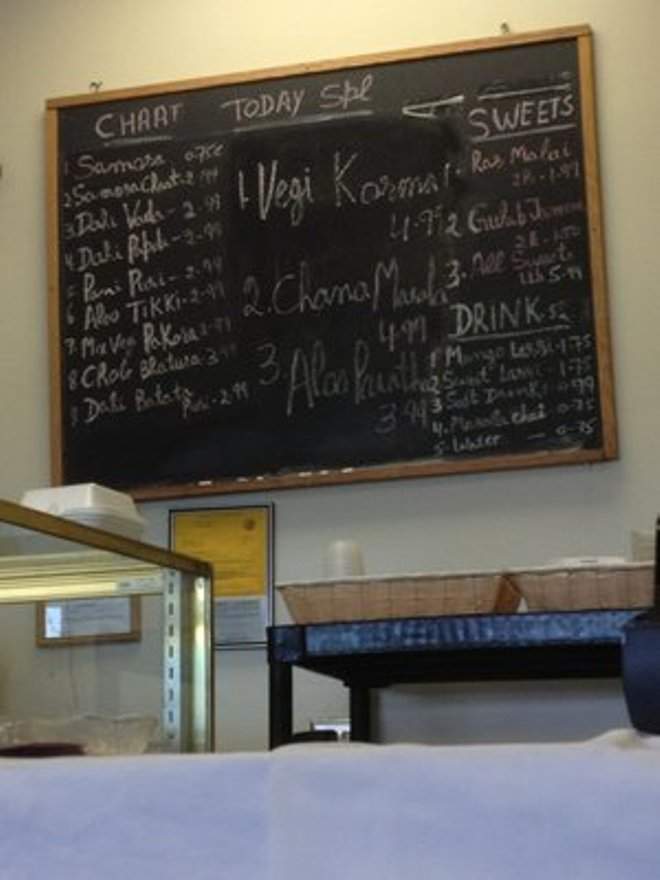 CHAAT
1 Samosa 0.75c
2 Samosa Chaat - 2.99
3 Dahi Vada - 2.99
4 Dahi - 2.99
5 Pani Puri - 2.99
6 Aloo TiKKi - 2.99
7 Mix Veg PaKora 2.99
8 Bhatura 3.99
9 Dahi Batata
Puri - 2.99
TODAY Spl
1. Vegi Korma
4.99
2. Chana Masala
4.99
3. Aloo Paratha
3.99
SWEETS
1. Ras Malai
2 Gulab Jamun
3. All Sweet
5.99
DRINKS
1 Mango Lassi - 1.75
2 Sweet Lassi - 1.75
3 Soft Drink 0.99
4. Masala chai 0.75
5. Water - 0.75